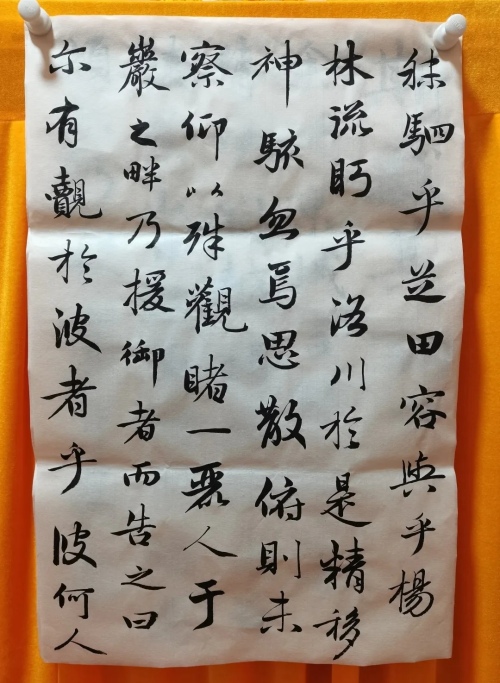 秣駟乎芝田容與乎楊
林流眄乎洛川於是精移
神駭忽焉思散俯則未
察仰以殊觀睹一麗人于
巖之畔乃援御者而告之曰
尓有覿於彼者乎彼何人